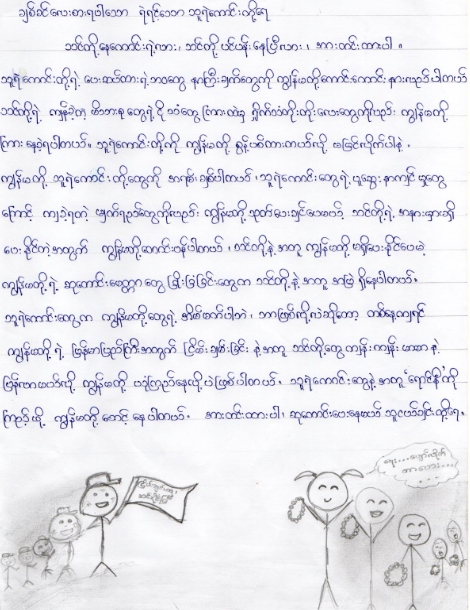 ချစ်ခင်လေးစားရပါသော ရဲရင့်သော သူရဲကောင်းတို့ရေ
သင်တို့နေကောင်းရဲ့လား၊ သင်တို့ ပင်ပန်းနေပြီလား၊ အားတင်းထားပါ ။
သူရဲကောင်းတို့ရဲ့ ပေးဆပ်ထားရဲ့ဘဝတွေ နာကြင်ချက်တွေကို ကျွန်မတို့ကောင်းကောင်း နားလည်ပါတယ်
သင်တို့ရဲ့ ကျန်ခဲ့တဲ့ မိဘအစုတွေရဲ့ ငိုသံတွေကြားထဲမှ ရှိုက်သံတိုးတိုးလေးတွေကိုလည်း ကျွန်မတို့
ကြားနေခဲ့ရပါတယ်။ သူရဲကောင်းတို့ကို ကျွန်မတို့ စွန့်ပစ်ထားတယ်လို့ မမြင်လိုက်ပါနဲ့ ၊
ကျွန်မတို့ သူရဲကောင်းတို့တွေကို အရမ်းချစ်ပါတယ် ၊ သူရဲကောင်းတွေရဲ့ပူဆွေး နာကျင်မှုတွေ
ကြောင့် ကျခဲ့ရတဲ့ မျက်ရည်တွေကိုလည်း ကျွန်မတို့သုတ်ပေးချင်ပေမယ့် သင်တို့ရဲ့ အနားမှာမရှိ
ပေးနိုင်တဲ့အတွက် ကျွန်မတို့တောင်းပန်ပါတယ် ၊ သင်တို့နဲ့အတူ ကျွန်မတို့ မရှိပေးနိုင်ပေမဲ့
ကျွန်မတို့ရဲ့ ဆုတောင်းမေတ္တာတွေ ခြုံငုံခြင်းတွေက သင်တို့နဲ့ အတူ အမြဲ ရှိနေပါတယ်။
သူရဲကောင်းတွေက ကျွန်မတို့တွေရဲ့ အိပ်မက်ပါဘဲ ၊ ဘာဖြစ်လို့လဲဆိုတော့ တစ်နေ့ကျရင်
ကျွန်မတို့ရဲ့ မြန်မာပြည်ကြီးအတွက် ငြိမ်းချမ်းခြင်း နဲ့အတူ သင်တို့တွေကျန်းကျန်းမာမာ နဲ့
ပြန်လာမယ်လို့ ကျွန်မတို့ ယုံကြည်နေလို့ပဲဖြစ်ပါတယ်။ သူရဲကောင်းတွေနဲ့အတူ "ရောင်နီ"ကို
ကြည့်ဖို့ ကျွန်မတို့ စောင့် နေပါတယ်။ အားတင်းထားပါ၊ ဆုတောင်းပေးနေမယ် သူငယ်ချင်းတို့ရေ.